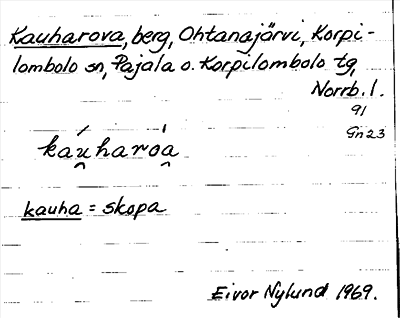 Kauharova, berg, Ohtanajärvi, Korpi-
lombolo sn, Pajala o. Korpilombolo tg,
Norrb. l.
91
Gn 23
káu̯haróa̯
kauha = skopa
Eivor Nylund 1969.